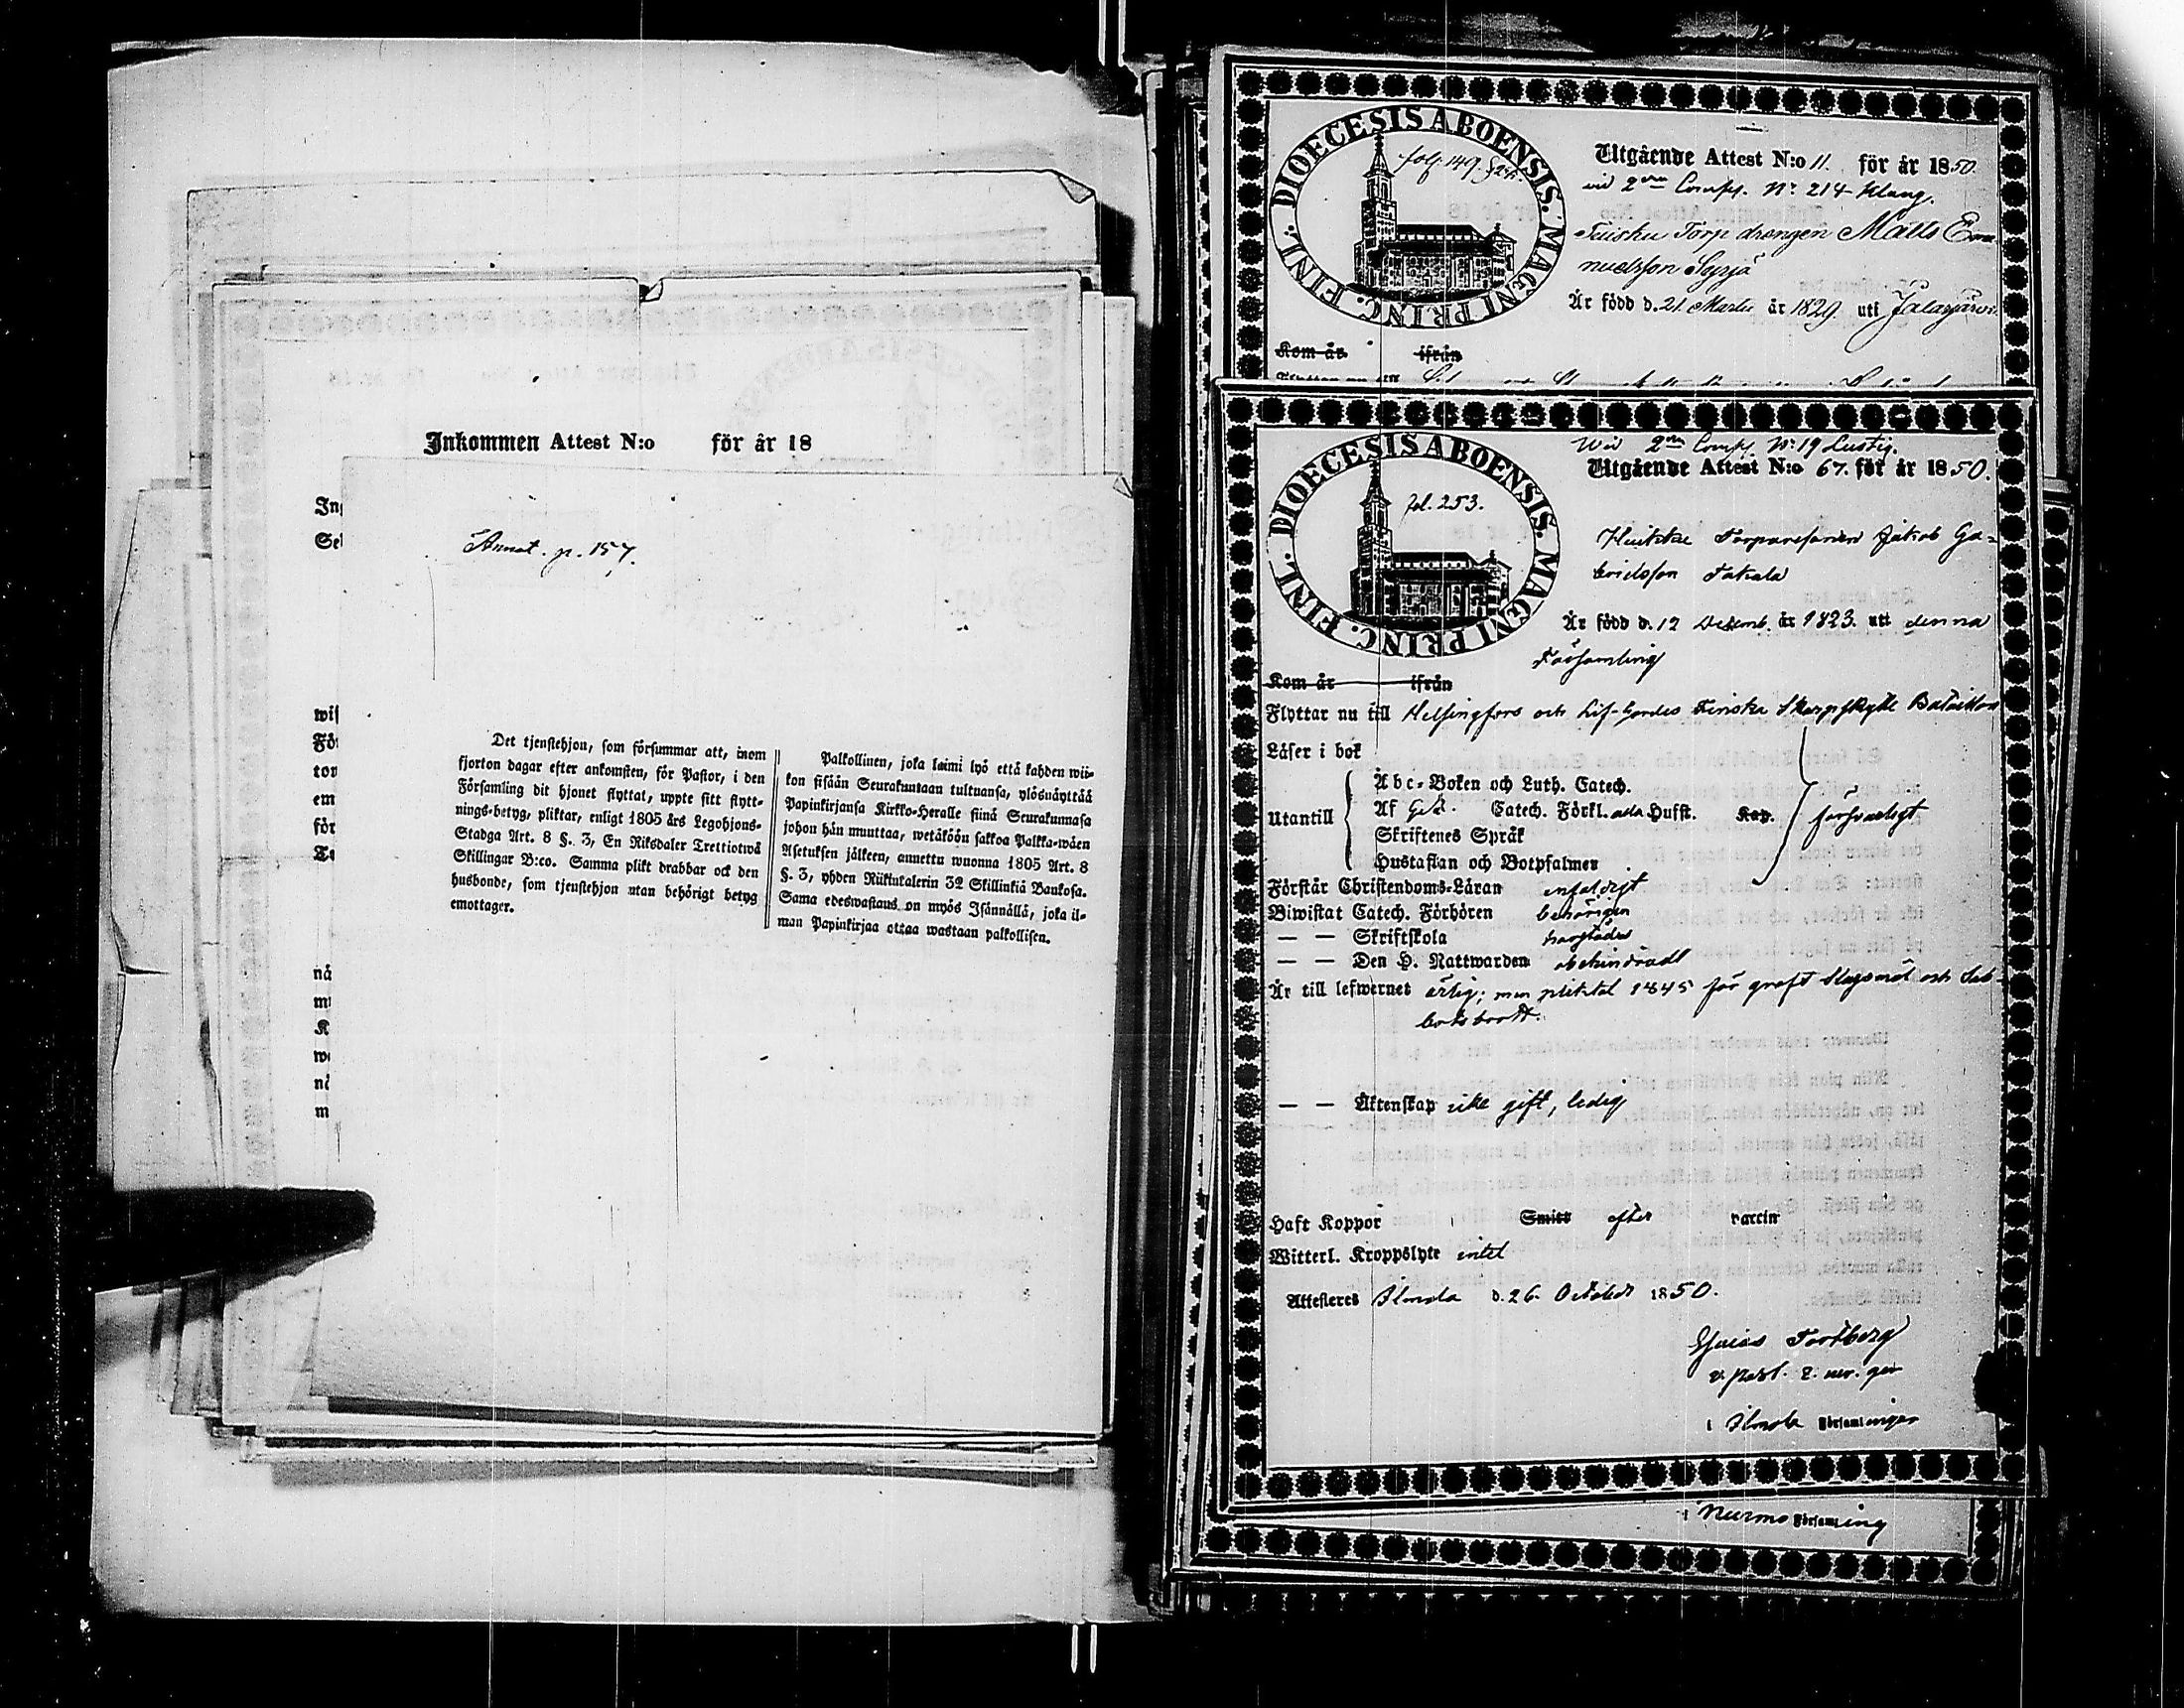 Inkommen Attest N:o för år 18
In
Se
Annot. p. 157.
wis
Fö
tor
em
för
Det tjenstehjon, som försummar att, inom
fjorton dagar efter ankomsten, för Pastor, i den
Församling dit hjonet flyttat, uppte sitt flytt-
nings-betyg, pliktar, enligt 1805 års Legohjons-
Stadga Art. 8 §. 3, En Riksdaler Trettiotwå
Skillingar B:co. Samma plikt drabbar ock den
husbonde, som tjenstehjon utan behörigt betyg
emottager.
Palkollinen, joka laimi lyö että kahden wii-
kon sisään Seurakuntaan tultuansa, ylösnäyttää
Papinkirjansa Kirkko-Heralle siinä Seurakunnasa
johon hän muuttaa, wetäköön sakkoa Palkka-wäen
Asetuksen jälkeen, annettu wuonna 1805 Art. 8
§. 3, yhden Riikintalerin 32 Skillinkiä Bankosa.
Sama edeswastaus on myös Isännällä, joka il-
man Papinkirjaa ottaa wastaan palkollisen.
nå
m
K
we
nå
m
DIOECESIS ABOENSIS. MAGNI PRINC. FINL.
fol. 149.
Utgående Attest N:o 11. för år 1850.
wid 2dra Comp. No 214 Klang.
Torp drängen Matts Ema
nuelsson Syrjä
Är född d. 21. Martii år 1829. uti Jalasjärvi.
Kom år ifrån
DIOECESIS ABOENSIS. MAGNI PRINC. FINL.
fol. 253.
Wid 2ra Comp. No 19 Lustig.
Utgående Attest N:o 67. för år 1850.
Torparesonen Jakob Ga=
brielsson Takala
Är född d. 12 Decemb. år 1823. uti denna
Församling
Kom år ifrån
Flyttar nu till Helsingfors och Lif-Gardes Finska Skarpskytte Bataillon
Läser i bok
Utantill
Abc-Boken och Luth. Catech.
Af Catech. Förkl. alla Hufst. Kap.
Skriftenes Språk
Hustaflan och Botpsalmer
försvarligt
Förstår Christendoms-Läran enfaldigt
Biwistat Catech. Förhören behörigen
— — Skriftskola
— — Den H. Nattwarden obehindradt
Är till lefwernet ärlig; men pliktat 1845 för groft slagsmål och Sab-
batsbrott.
— — Äktenskap icke gift, ledig
Haft Koppor Smitt efter vaccin
Witterl. Kroppslyte intet
Attesteras Ilmola d. 26 October 1850.
Tortberg
v. past.
i Ilmola Församlingen
i Nurmo Församling